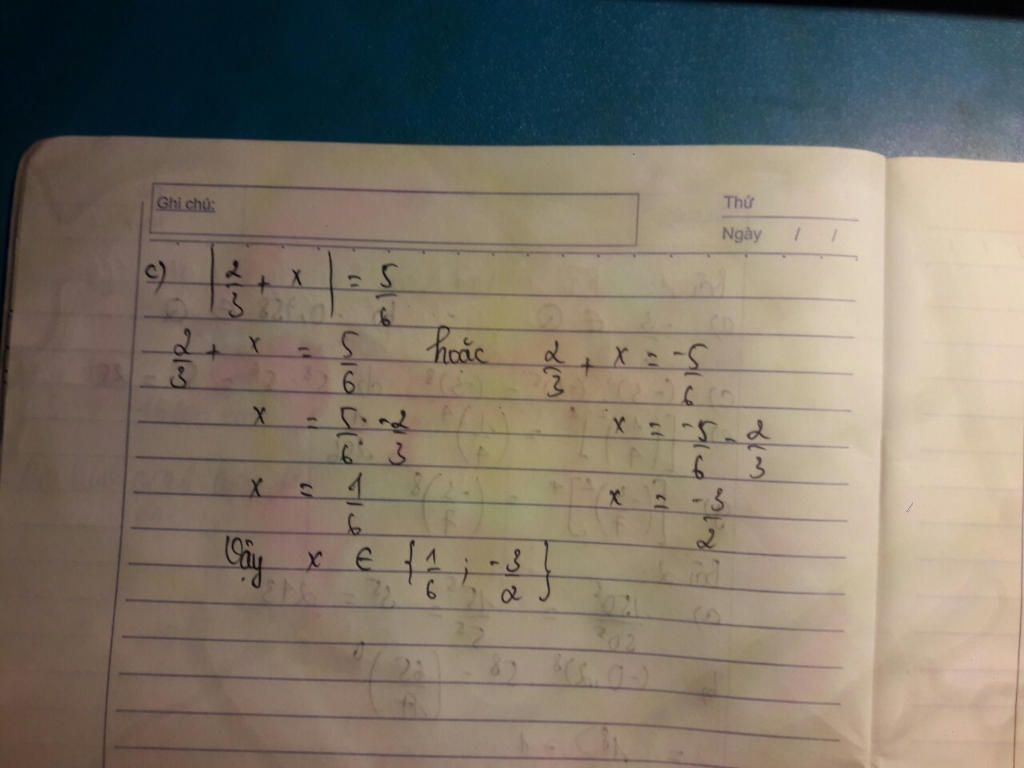 Ghi chú:
Thứ
Ngày / /
c) |2/3 + x| = 5/6
2/3 + x = 5/6 hoặc 2/3 + x = -5/6
x = 5/6 - 2/3 x = -5/6 - 2/3
x = 1/6 x = -3/2
Vậy x ∈ {1/6 ; -3/2}